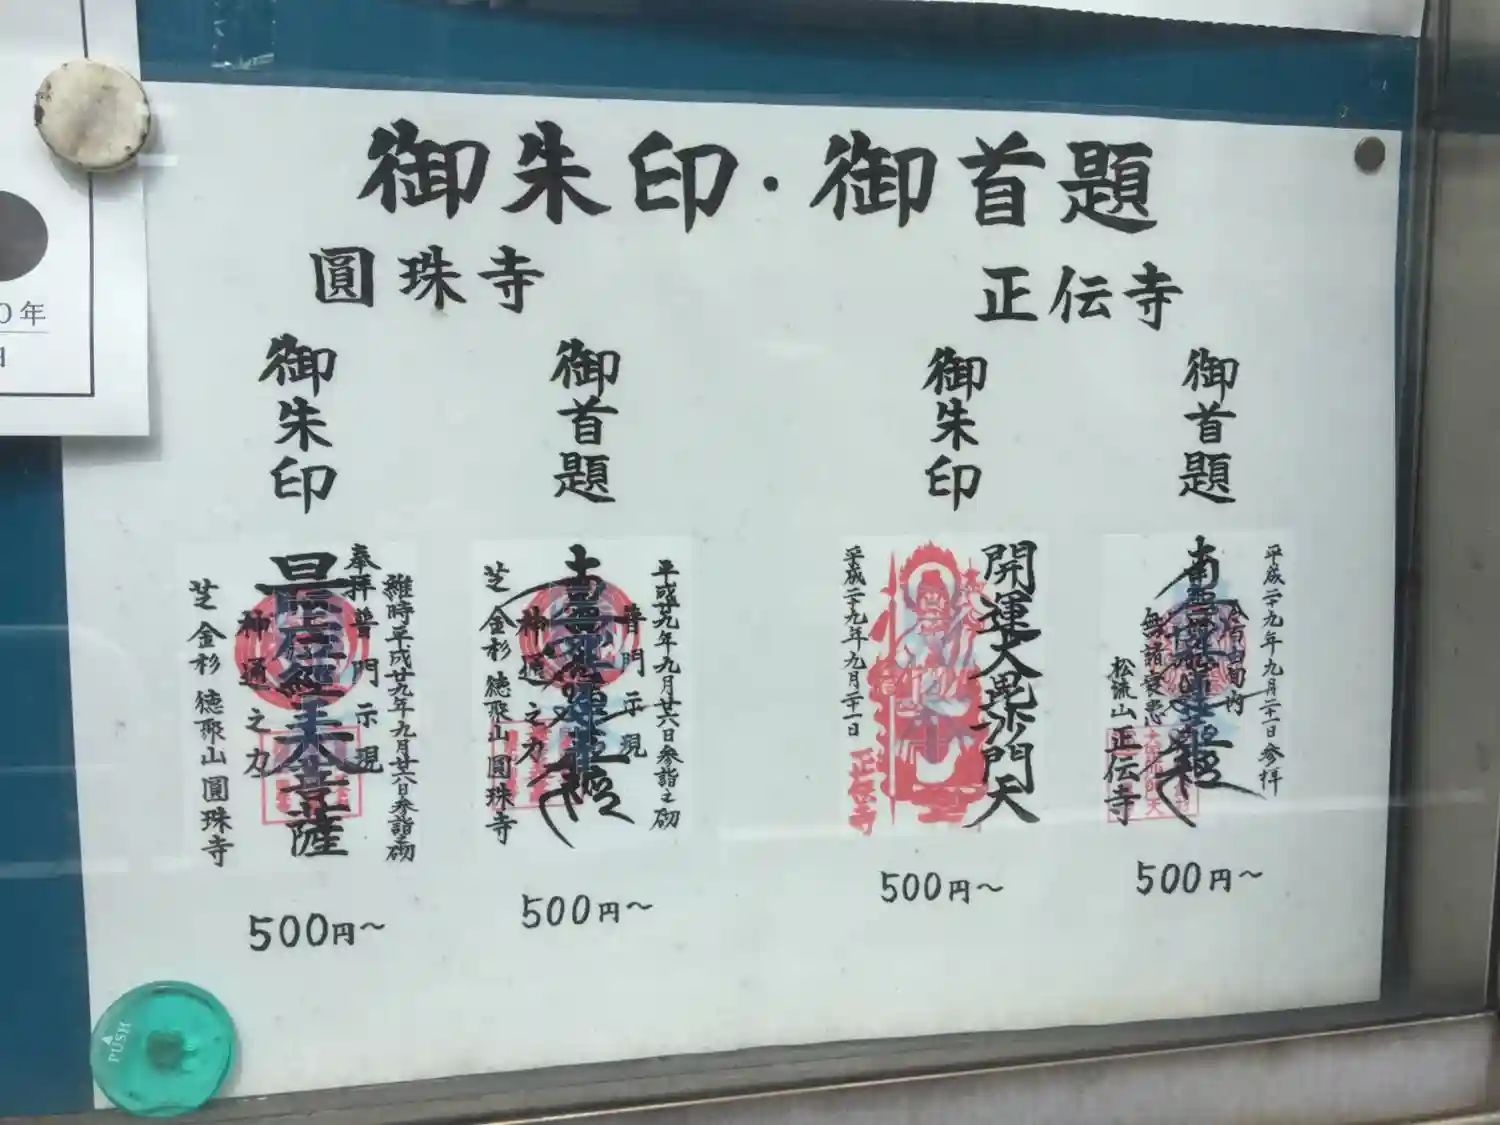 御朱印・御首題
圓珠寺
正伝寺
御首題
御朱印
御首題
御朱印
平成二十九年九月二十一日参拝
松流山
正伝寺
開運大毘沙門天
平成二十九年九月二十一日
正伝寺
平成廿九年九月廿六日参詣之砌
普門示現
神通之力
芝金杉
徳聚山圓珠寺
維時平成廿九年九月廿六日参詣之砌
奉拝
普門示現
神通之力
芝金杉
徳聚山圓珠寺
500円〜
500円〜
500円〜
500円〜
0年
日
PUSH